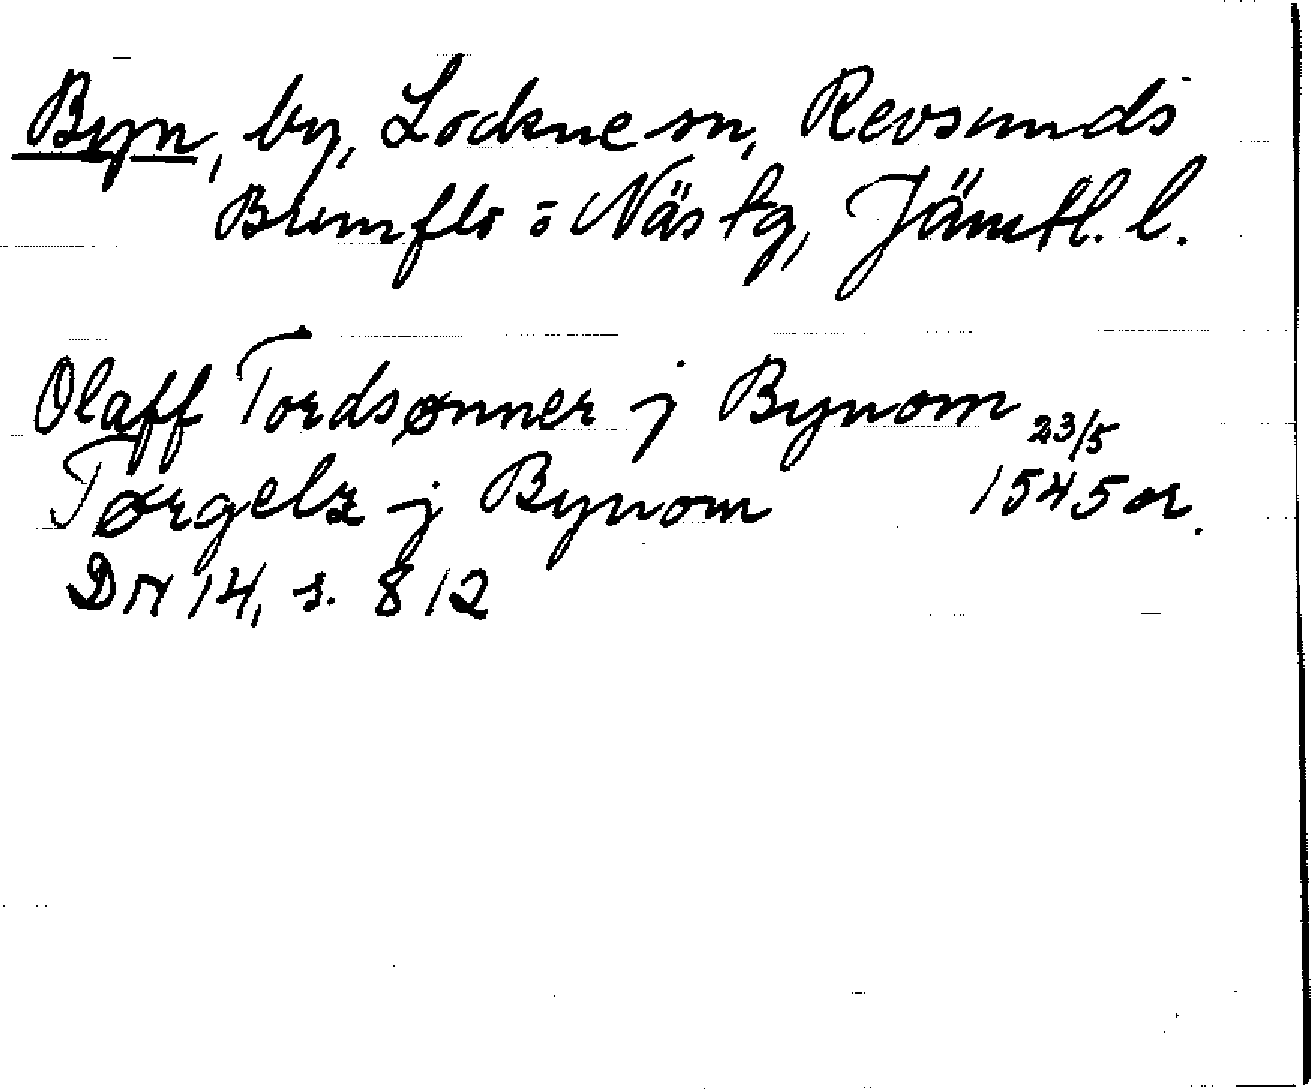 Byn, by, Lockne sn, Revsunds
Brunflo o Näs tg, Jämtl. l.
Olaff Tordsønner j Bynom 23/5
Tørgelz j Bynom 1545 or.
DN 14, s. 812